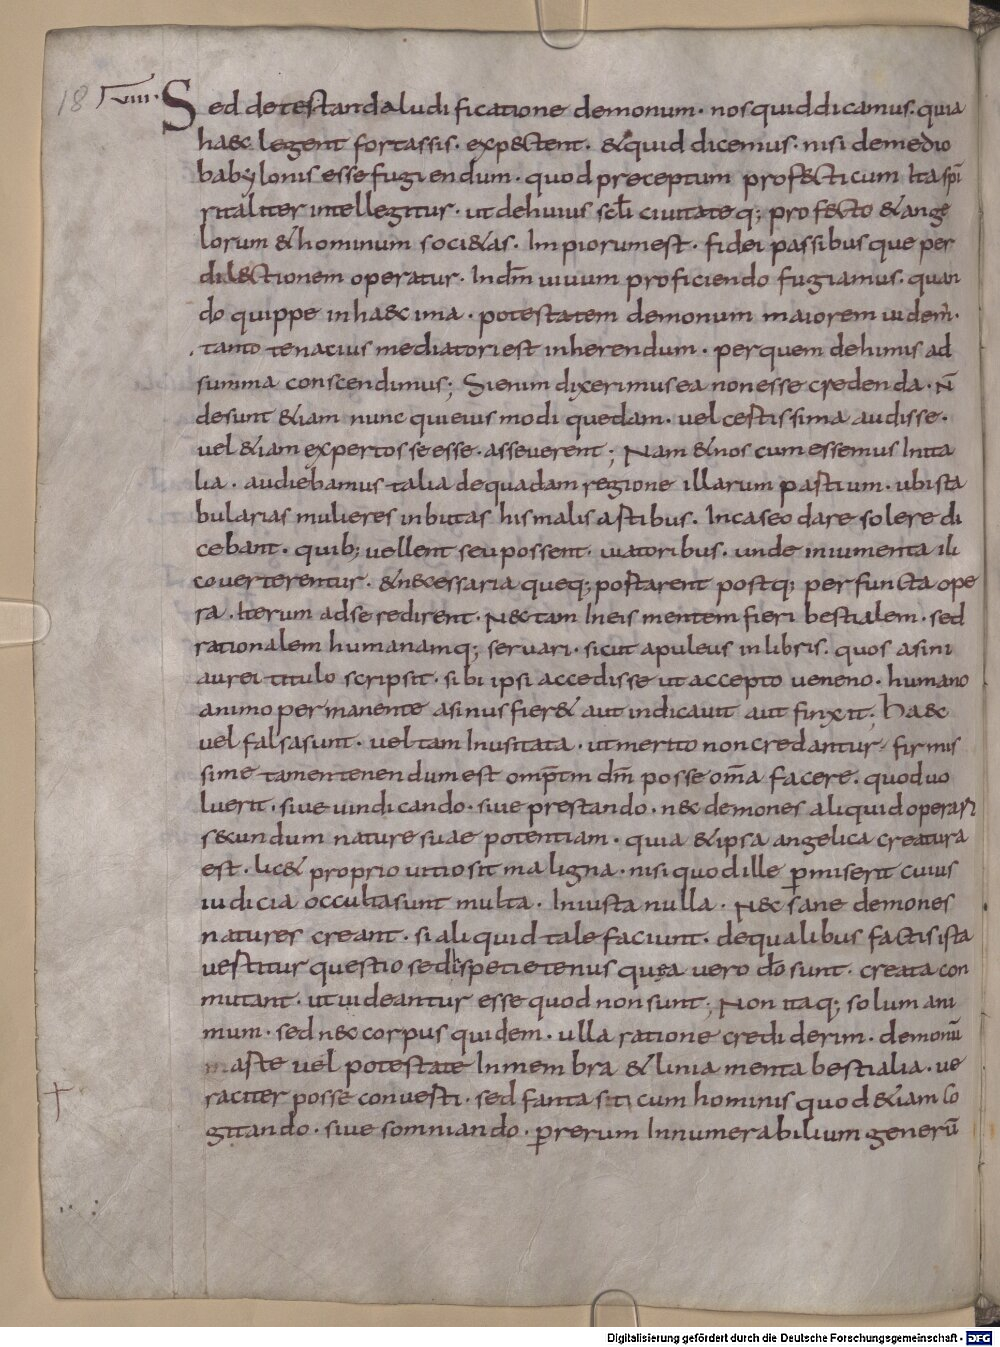 18 XVIII· Sed detestanda ludificatione demonum· nos quid dicamus· quia
haec legent fortassis· expectent· & quid dicemus· nisi de medio
babylonis esse fugiendum· quod preceptum profecticum ita spī
ritaliter intellegitur· ut de huius scl̄i ciuitateq; profecto & ange
lorum & hominum soci&as· Impiorum est· fidei passibus que per
dilectionem operatur· In dm̄ uiuum proficiendo fugiamus· quan
do quippe in haec ima· potestatem demonum maiorem uidem̄·
tanto tenacius mediatori est inherendum· per quem de himis ad
summa conscendimus; Si enim dixerimus ea non esse credenda· n̄
desunt &iam nunc qui eius modi quedam· uel cestissima audisse·
uel &iam expertos se esse· asseuerent; Nam & nos cum essemus In ita
lia· audiebamus talia de quadam regione illarum pastium· ubi sta
bularias mulieres inbutas his malis astibus· In caseo dare solere di
cebant· quib; uellent seu possent· uiatoribus· unde in iumenta ili
couerterentur· & necessaria queq; postarent postq; perfuncta ope
ra· Iterum ad se redirent· Nec tam In eis mentem fieri bestialem· sed
rationalem humanamq; seruari· sicut apuleus in libris· quos asini
aurei titulo scripsit· sibi ipsi accedisse ut accepto ueneno· humano
animo permanente asinus fier& aut indicauit aut finxit; Haec
uel falsa sunt· uel tam Inusitata· ut merito non credantur· firmis
sime tamen tenendum est omp̄tm dm̄ posse om̄a facere· quod uo
luerit· siue uindicando· siue prestando· nec demones aliquid operari
secundum nature suae potentiam· quia & ipsa angelica creatura
est· lic& proprio uitio sit maligna· nisi quod ille p̱miserit cuius
iudicia occulta sunt multa· Iniusta nulla· Nec sane demones
natures creant· si aliquid tale faciunt· de qualibus factis ista
uestitur questio sed spetietenus quęa uero dō sunt· creata con
mutant· ut uideantur esse quod non sunt; Non itaq; solum ani
mum· sed nec corpus quidem· ulla ratione crediderim· demonū
maste uel potestate In membra & liniamenta bestialia· ue
raciter posse conuesti· sed fantasiticum hominis quod &iam co
gitando· siue somniando· p̱ rerum Innumerabilium generū
Digitalisierung gefördert durch die Deutsche Forschungsgemeinschaft - DFG